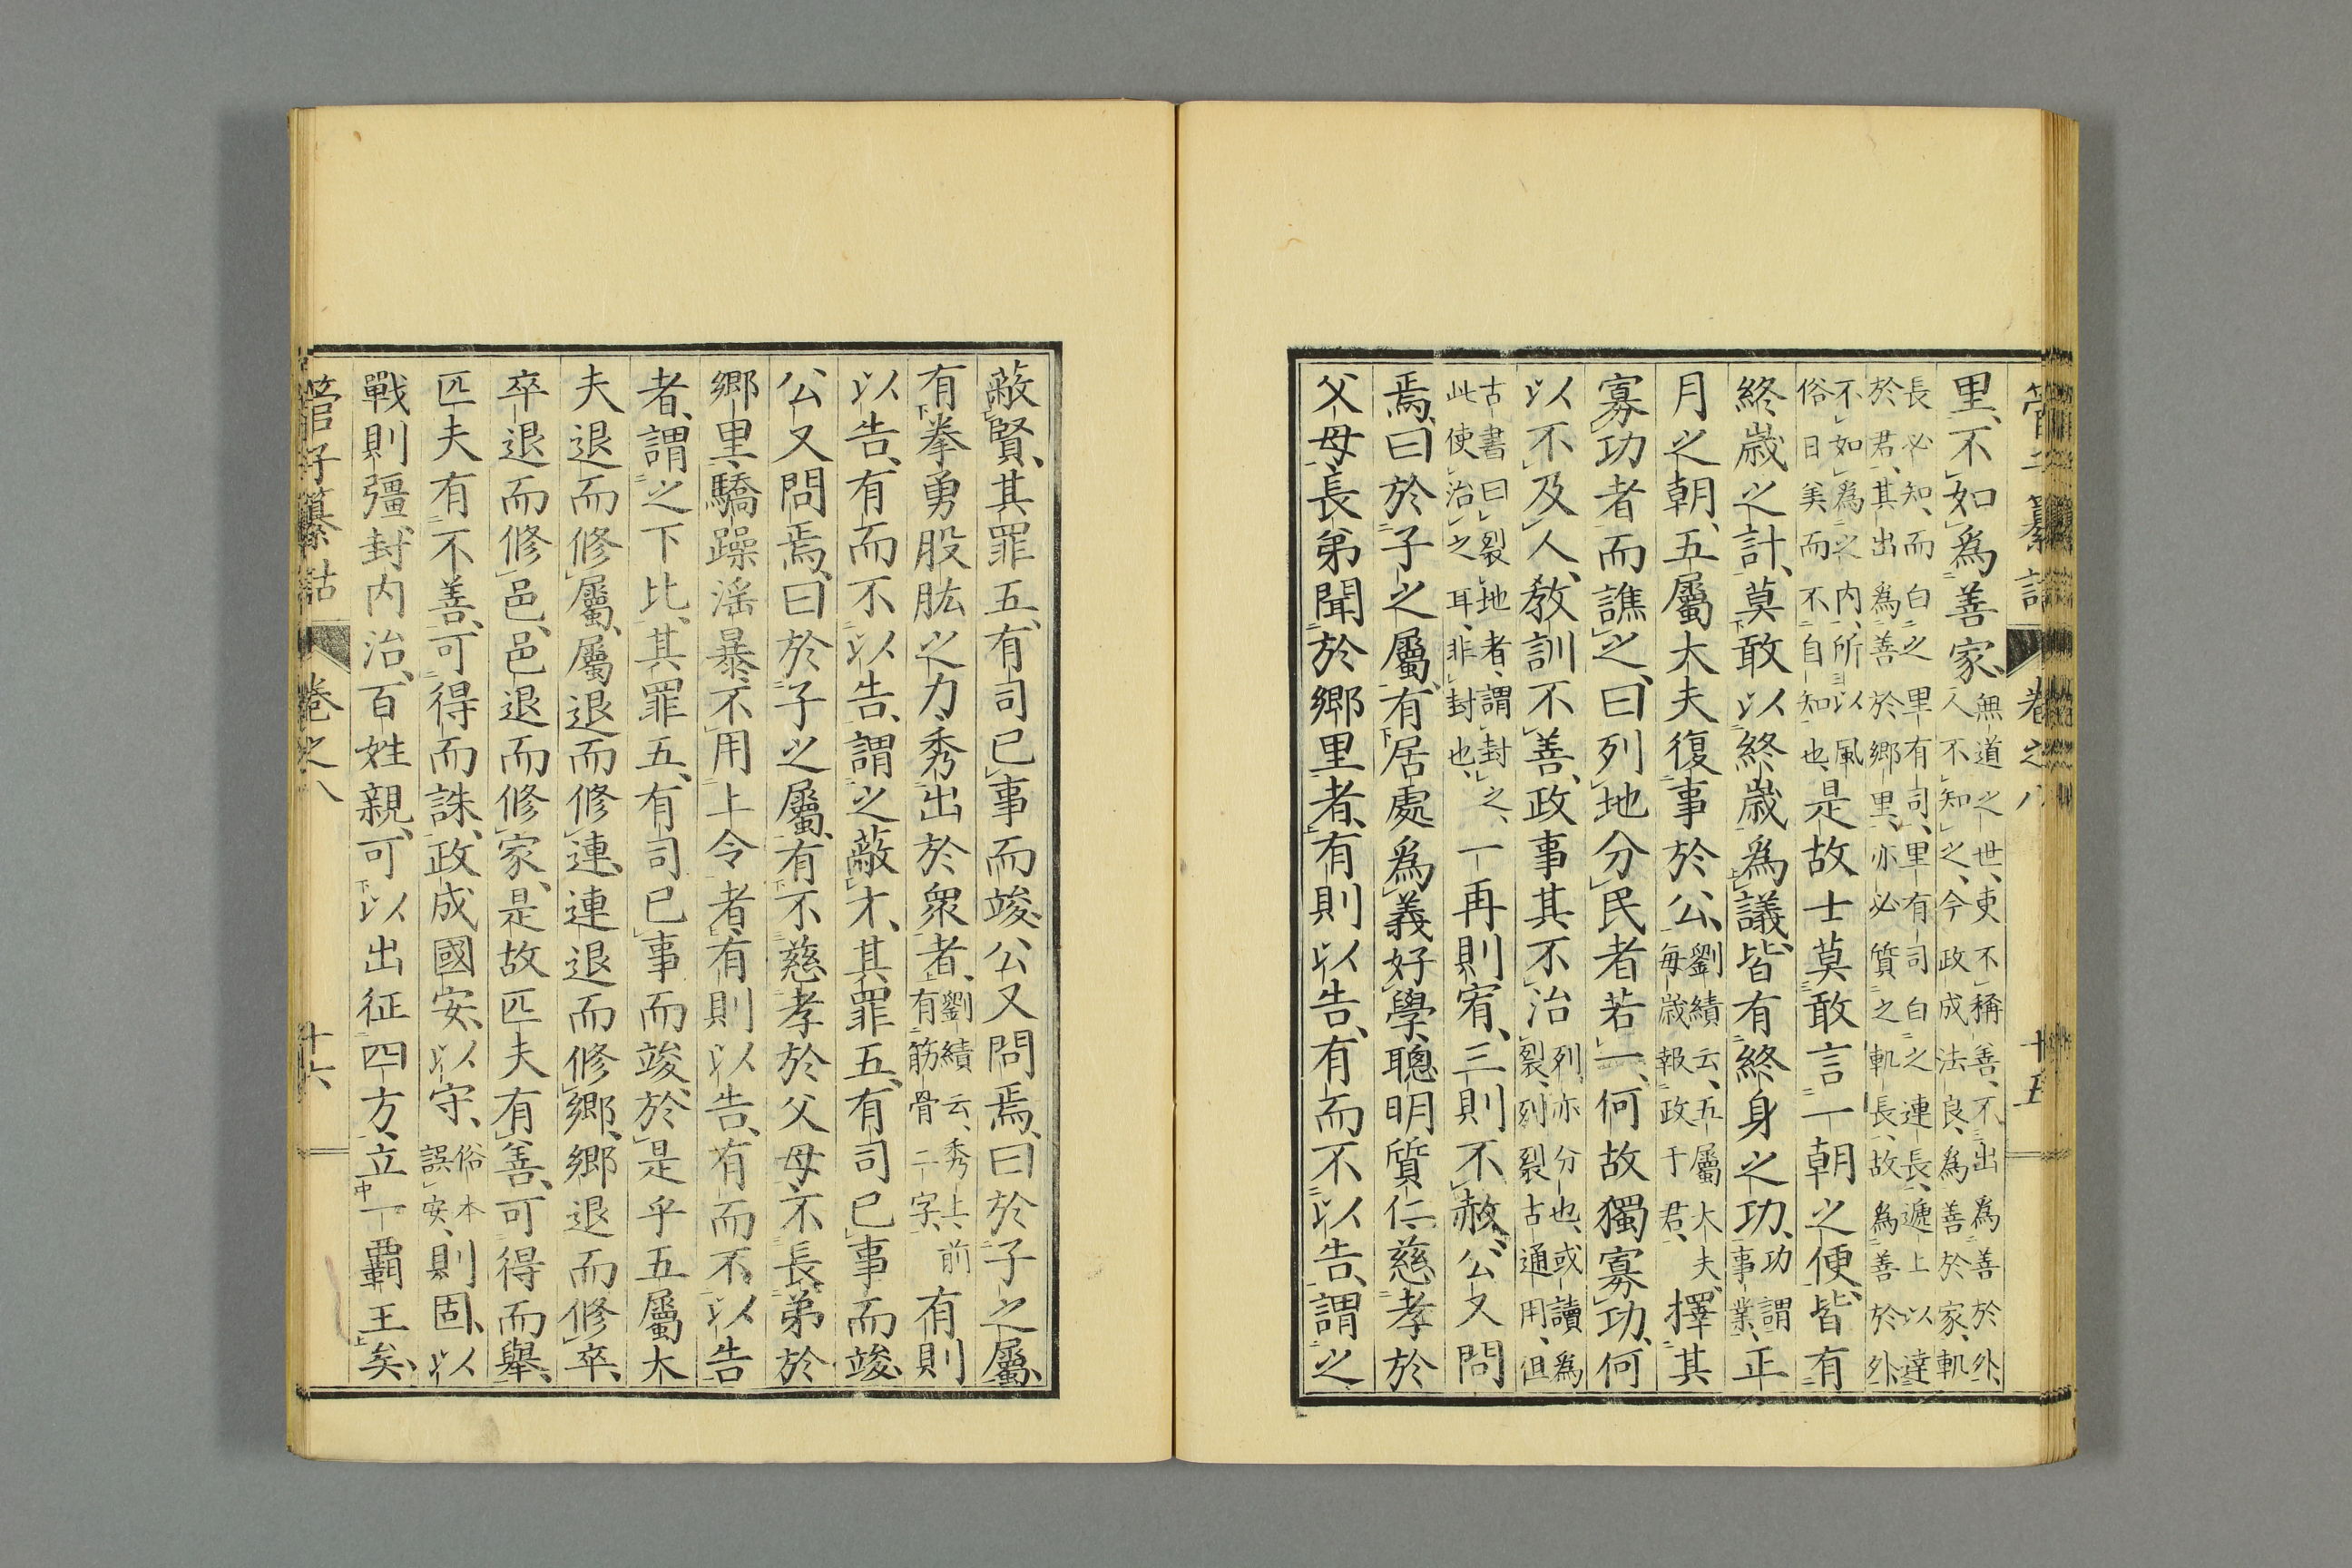 管子纂詁 卷之八 十五
里、不如爲善家、
無道之世、吏不稱善、不出爲善於外、
人不知之、今政成法良、爲善於家、軌
長必知、而白之里有司、里有司白之連長、遞上以達
於君、其出爲善於鄉里、亦必質之軌長、故爲善於外
不如爲之内、所以風
俗日美而不自知也、
是故士莫敢言一朝之便、皆有
終歲之計、莫敢以終歲爲議、皆有終身之功、
功謂
事業、
正
月之朝、五屬大夫復事於公、
劉績云、五屬大夫、
每歲報政于君、
擇其
寡功者而譙之、曰列地分民者若一、何故獨寡功、何
以不及人、教訓不善、政事其不治
列亦分也、或讀爲
裂、列裂古通用、但
古書曰裂地者、謂封之、
此使治之耳、非封也、
一再則宥、三則不赦、公又問
焉、曰於子之屬、有居處爲義好學、聰明質仁、慈孝於
父母、長弟聞於鄉里者、有則以告、有而不以告、謂之
蔽賢、其罪五、有司已事而竣、公又問焉、曰於子之屬、
有拳勇股肱之力、秀出於衆者、
劉績云、秀上、前
有筋骨二字、
有則
以告、有而不以告、謂之蔽才、其罪五、有司已事而竣、
公又問焉、曰於子之屬、有不慈孝於父母、不長弟於
鄉里、驕躁淫暴、不用上令者、有則以告、有而不以告
者、謂之下比、其罪五、有司已事而竣、於是乎五屬大
夫退而修屬、屬退而修連、連退而修鄉、鄉退而修卒、
卒退而修邑、邑退而修家、是故匹夫有善、可得而舉、
匹夫有不善、可得而誅、政成國安、以守、
俗本
誤安、
則固、以
戰則彊、封内治、百姓親、可以出征四方、立一覇王矣、
管子纂詁 卷之八 十六